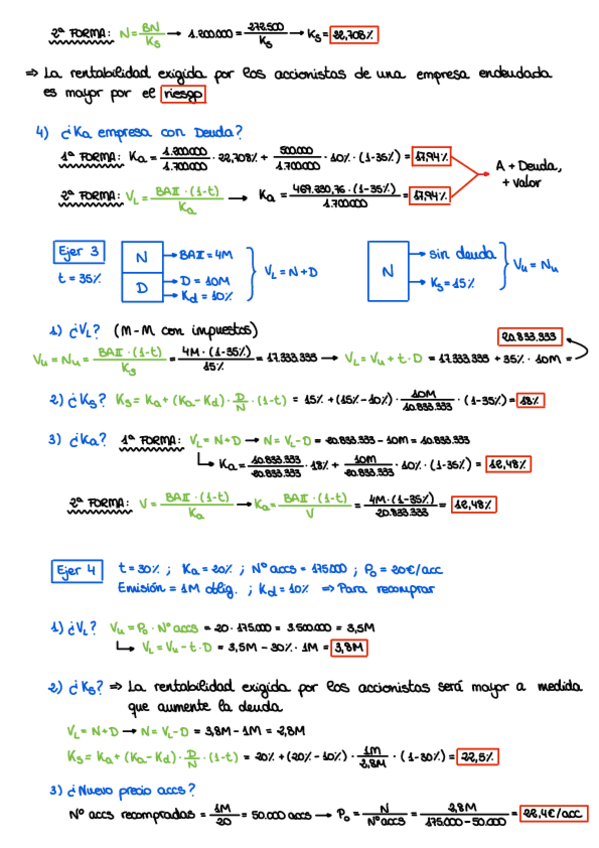 2ª FORMA: N = BN / Ks → 1.200.000 = 272.500 / Ks → Ks = 22,708%
⇒ La rentabilidad exigida por los accionistas de una empresa endeudada
es mayor por el riesgo
4) ¿Ka empresa con Deuda?
1ª FORMA: Ka = 1.200.000 / 1.700.000 · 22,708% + 500.000 / 1.700.000 · 10% · (1-35%) = 17,94%
A + Deuda,
+ valor
2ª FORMA: VL = BAII · (1-t) / Ka → Ka = 469.230,76 · (1-35%) / 1.700.000 = 17,94%
Ejer 3
t = 35%
N → BAII = 4M
D → D = 10M
→ Kd = 10%
VL = N + D
N → sin deuda
→ Ks = 15%
Vu = Nu
1) ¿VL? (M-M con impuestos)
20.833.333
Vu = Nu = BAII · (1-t) / Ks = 4M · (1-35%) / 15% = 17.333.333 → VL = Vu + t · D = 17.333.333 + 35% · 10M =
2) ¿Ks? Ks = Ka + (Ka - Kd) · D / N · (1-t) = 15% + (15% - 10%) · 10M / 10.833.333 · (1-35%) = 18%
3) ¿Ka? 1ª FORMA: VL = N + D → N = VL - D = 20.833.333 - 10M = 10.833.333
Ka = 10.833.333 / 20.833.333 · 18% + 10M / 20.833.333 · 10% · (1-35%) = 12,48%
2ª FORMA: V = BAII · (1-t) / Ka → Ka = BAII · (1-t) / V = 4M · (1-35%) / 20.833.333 = 12,48%
Ejer 4
t = 30% ; Ka = 20% ; Nº accs = 175.000 ; P0 = 20€/acc
Emisión = 1M oblig. ; Kd = 10% ⇒ Para recomprar
1) ¿VL? Vu = P0 · Nº accs = 20 · 175.000 = 3.500.000 = 3,5M
VL = Vu - t · D = 3,5M - 30% · 1M = 3,8M
2) ¿Ks? ⇒ La rentabilidad exigida por los accionistas será mayor a medida
que aumente la deuda
VL = N + D → N = VL - D = 3,8M - 1M = 2,8M
Ks = Ka + (Ka - Kd) · D / N · (1-t) = 20% + (20% - 10%) · 1M / 2,8M · (1-30%) = 22,5%
3) ¿Nuevo precio accs?
Nº accs recompradas = 1M / 20 = 50.000 accs → P0 = N / Nº accs = 2,8M / 175.000 - 50.000 = 22,4€/acc